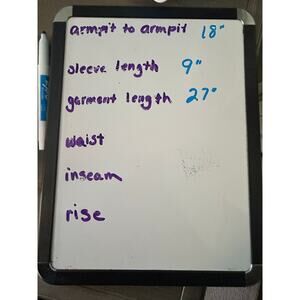 armpit to armpit 18"
sleeve length 9"
garment length 27"
waist
inseam
rise